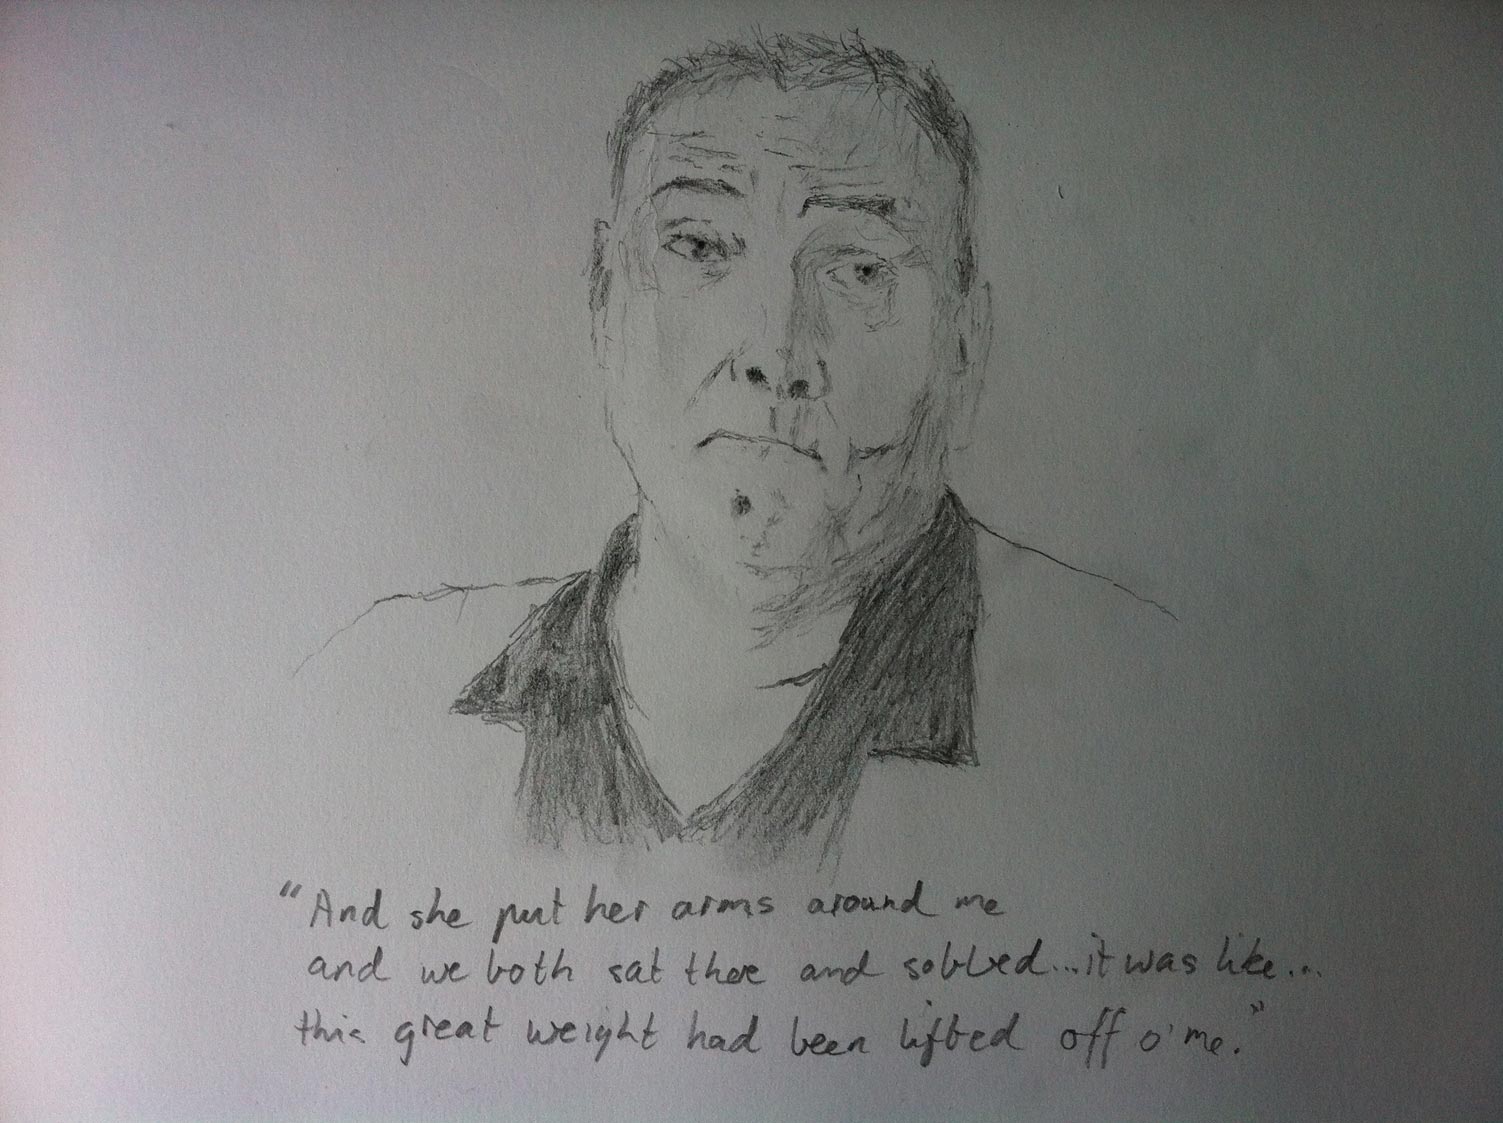 "And she put her arms around me
and we both sat there and sobbed...it was like...
this great weight had been lifted off o'me."